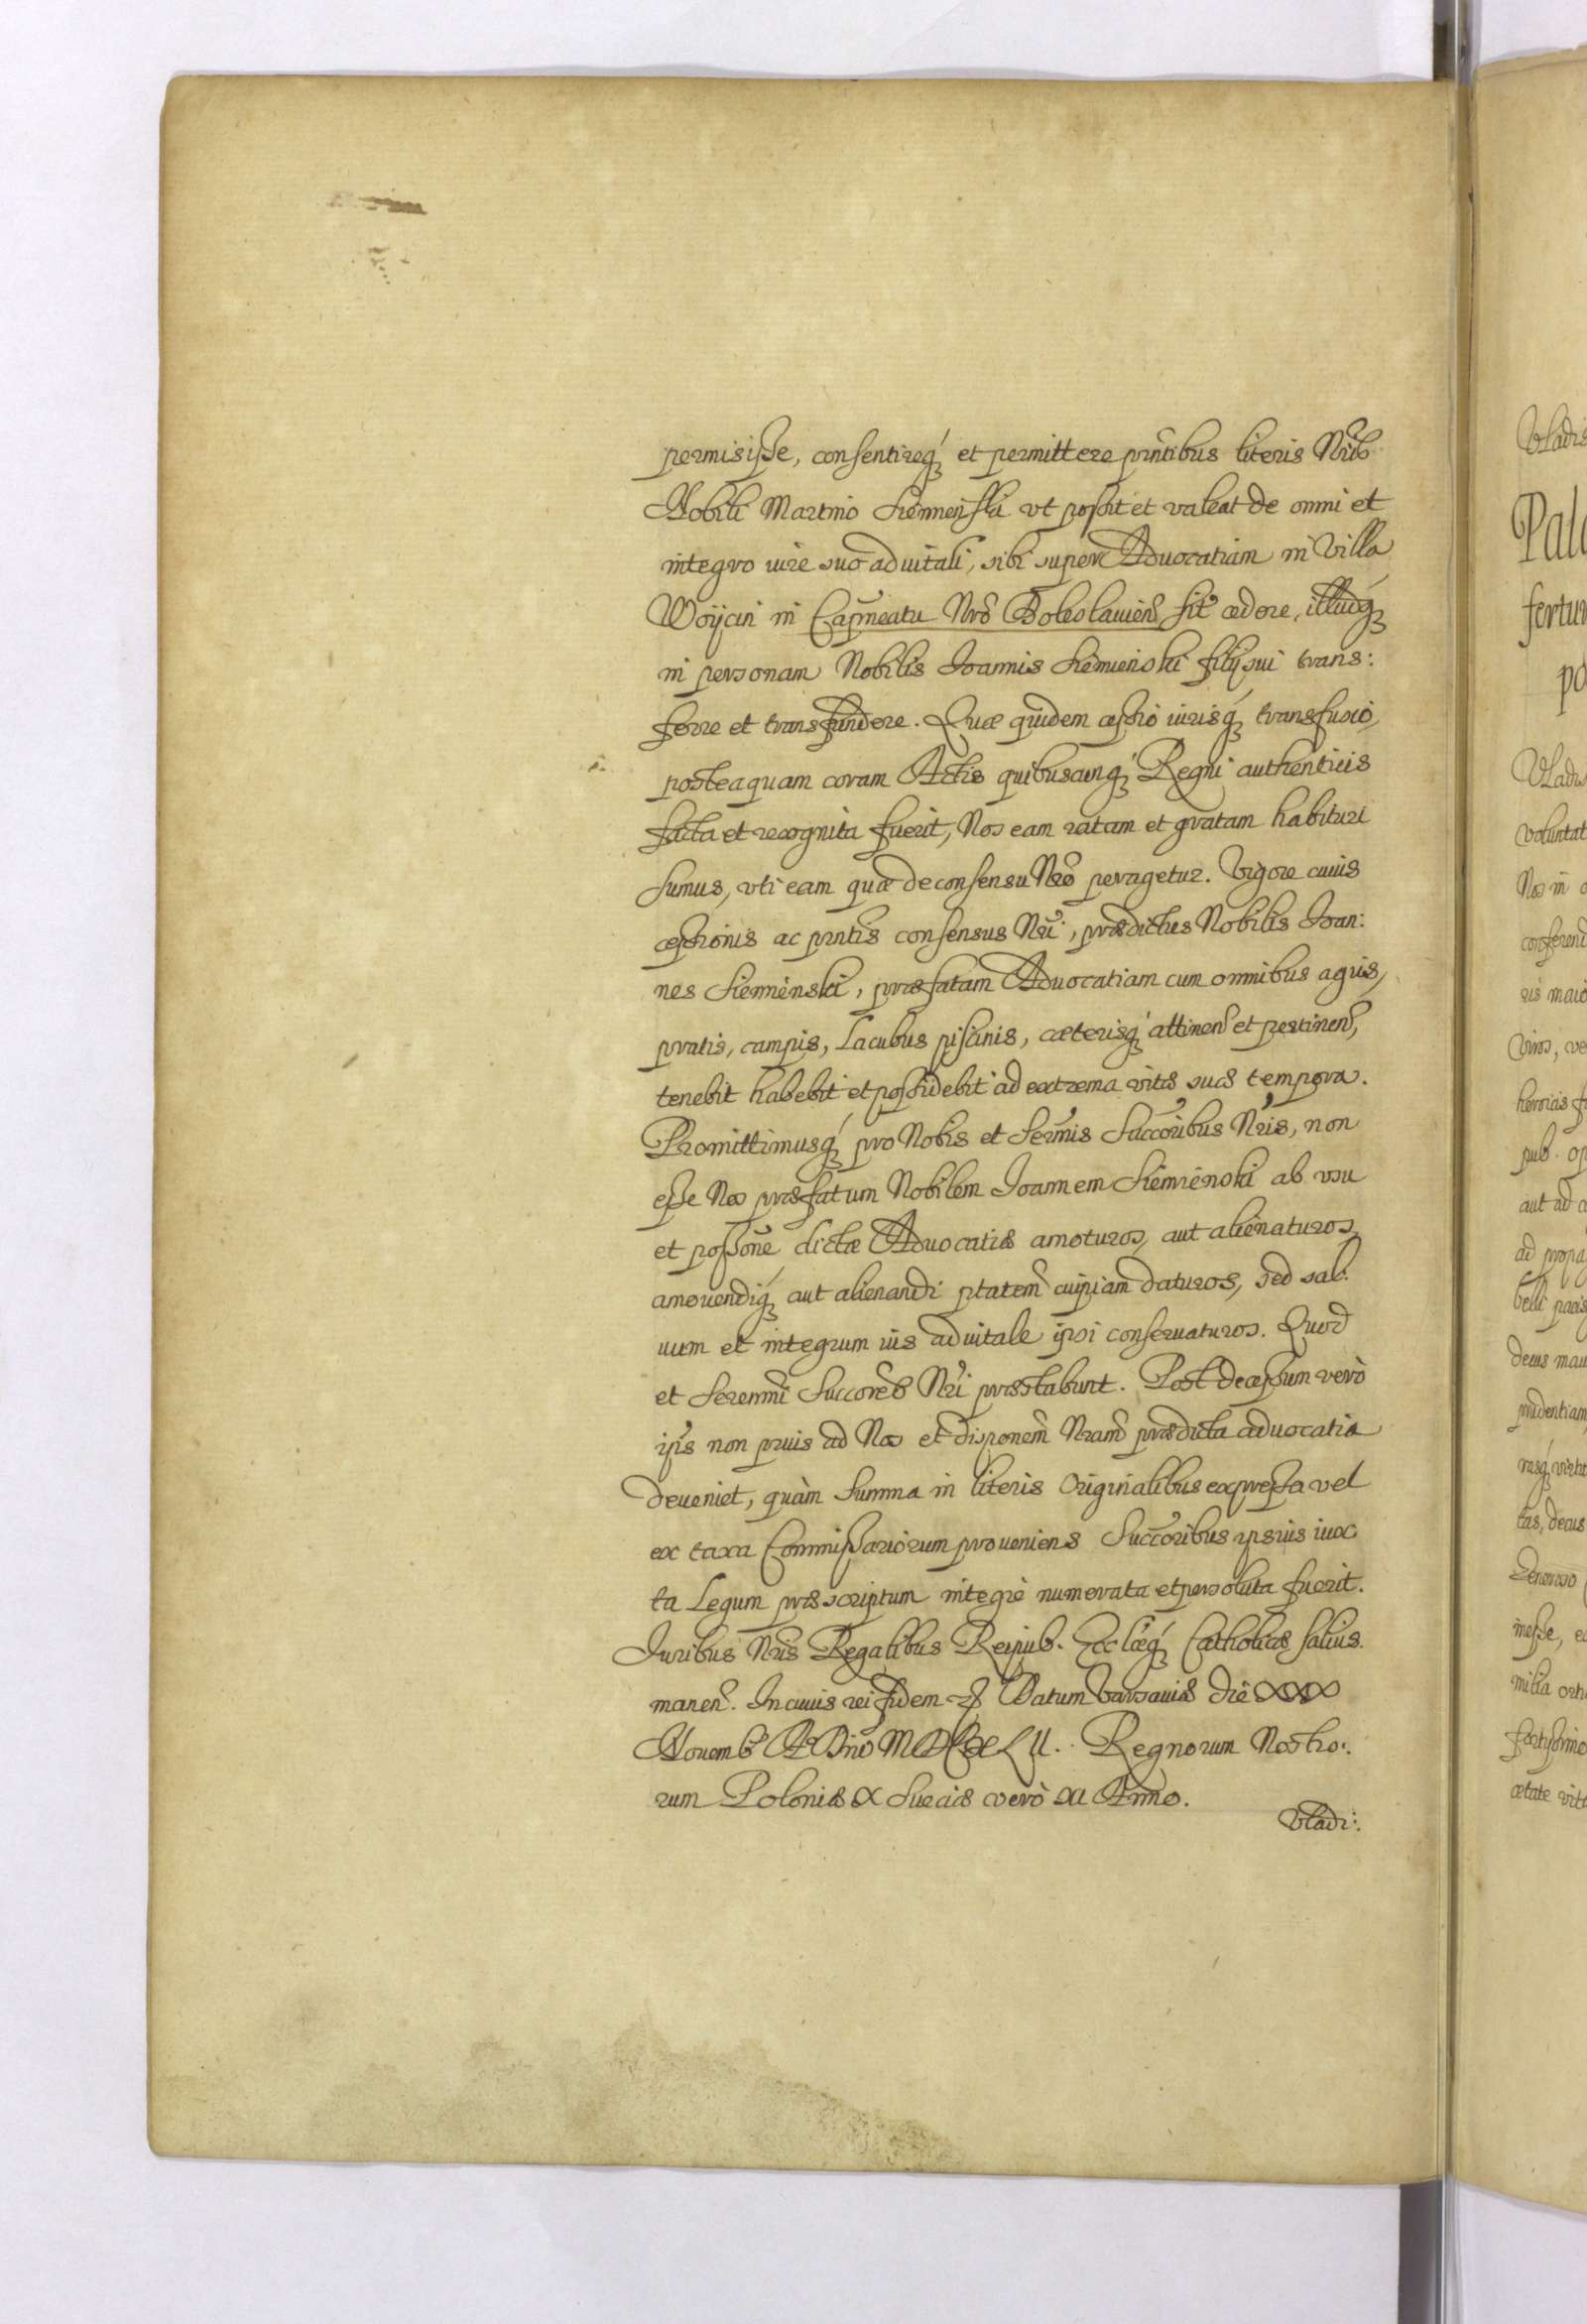 permisisse, consentireq́ꝫ et permittere pñtibus literis Nr̃is
Nobili Martino Siemienski vt possit et valeat de omni et
integro iure suo aduitali, sibi super Aduocatiam in Villa
Woÿcin in Cap̃neatu Nrõ Boleslauieñ sit̃ cedere, illudq́ꝫ
in personam Nobilis Joannis Siemienski filÿ sui trans:
ferre et transfundere. Quæ quidem cessio iurisq́ꝫ transfusio,
posteaquam coram Actis quibuscunq́ꝫ Regni authenticis
facta et recognita fuerit, Nos eam ratam et gratam habituri
sumus, vti eam quæ de consensu Nrõ peragetur. Vigore cuius
cessionis ac pñtis consensus Nr̃i, prædictus Nobilis Joan:
nes Siemienski, præfatam Aduocatiam cum omnibus agris,
pratis, campis, Lacubus piscinis, cæterisq́ꝫ attineñ et pertineñ,
tenebit habebit et possidebit ad extrema vitæ suæ tempora.
Promittimusq́ꝫ pro Nobis et Serm̃is Succõribus Nr̃is, non
esse Nos præfatum Nobilem Joannem Siemienski ab vsu
et possoñe dictæ Aduocatiæ amoturos, aut alienaturos,
amouendiq́ꝫ aut alienandi p̃tatem cuipiam daturos, sed sal:
uum et integrum ius aduitale ipsi conseruaturos. Quod
et Serenmĩ Succorẽs Nr̃i præstabunt. Post decessum verò
ip̃s non prius ad Nos et disponem̃ Nram̃ prædicta aduocatia
deueniet, quàm summa in literis Originalibus expressa vel
ex taxa Commissariorum proueniens Succõribus ipsius iux
ta Legum præscriptum integrè numerata et persoluta fuerit.
Juribus Nr̃is Regalibus Reipub. Eccl̃æq́ꝫ Catholicæ saluis
maneñ. In cuius rei fidem ꝛc̃ Datum Varsauiæ die XXX
Nouemb̃ A͂ Dnĩ MDCXLII. Regnorum Nostro:
rum Poloniæ X Sueciæ verò XI Anno.
Vladi: